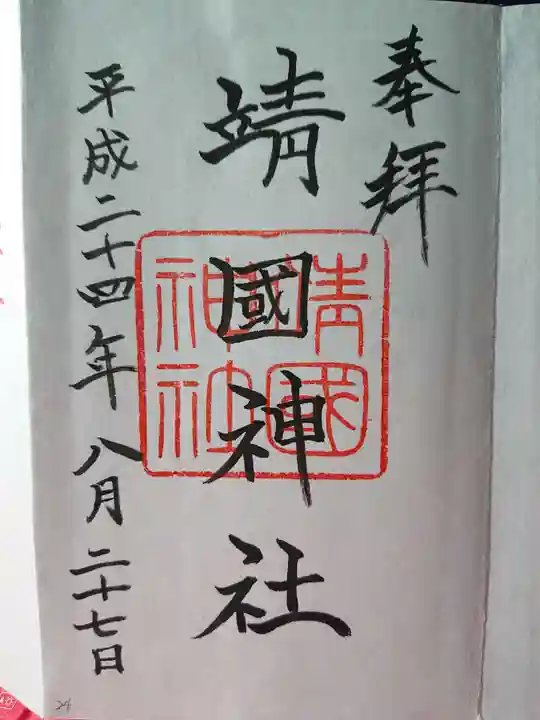 奉拝
靖國神社
靖國
神社
平成二十四年八月二十七日
24